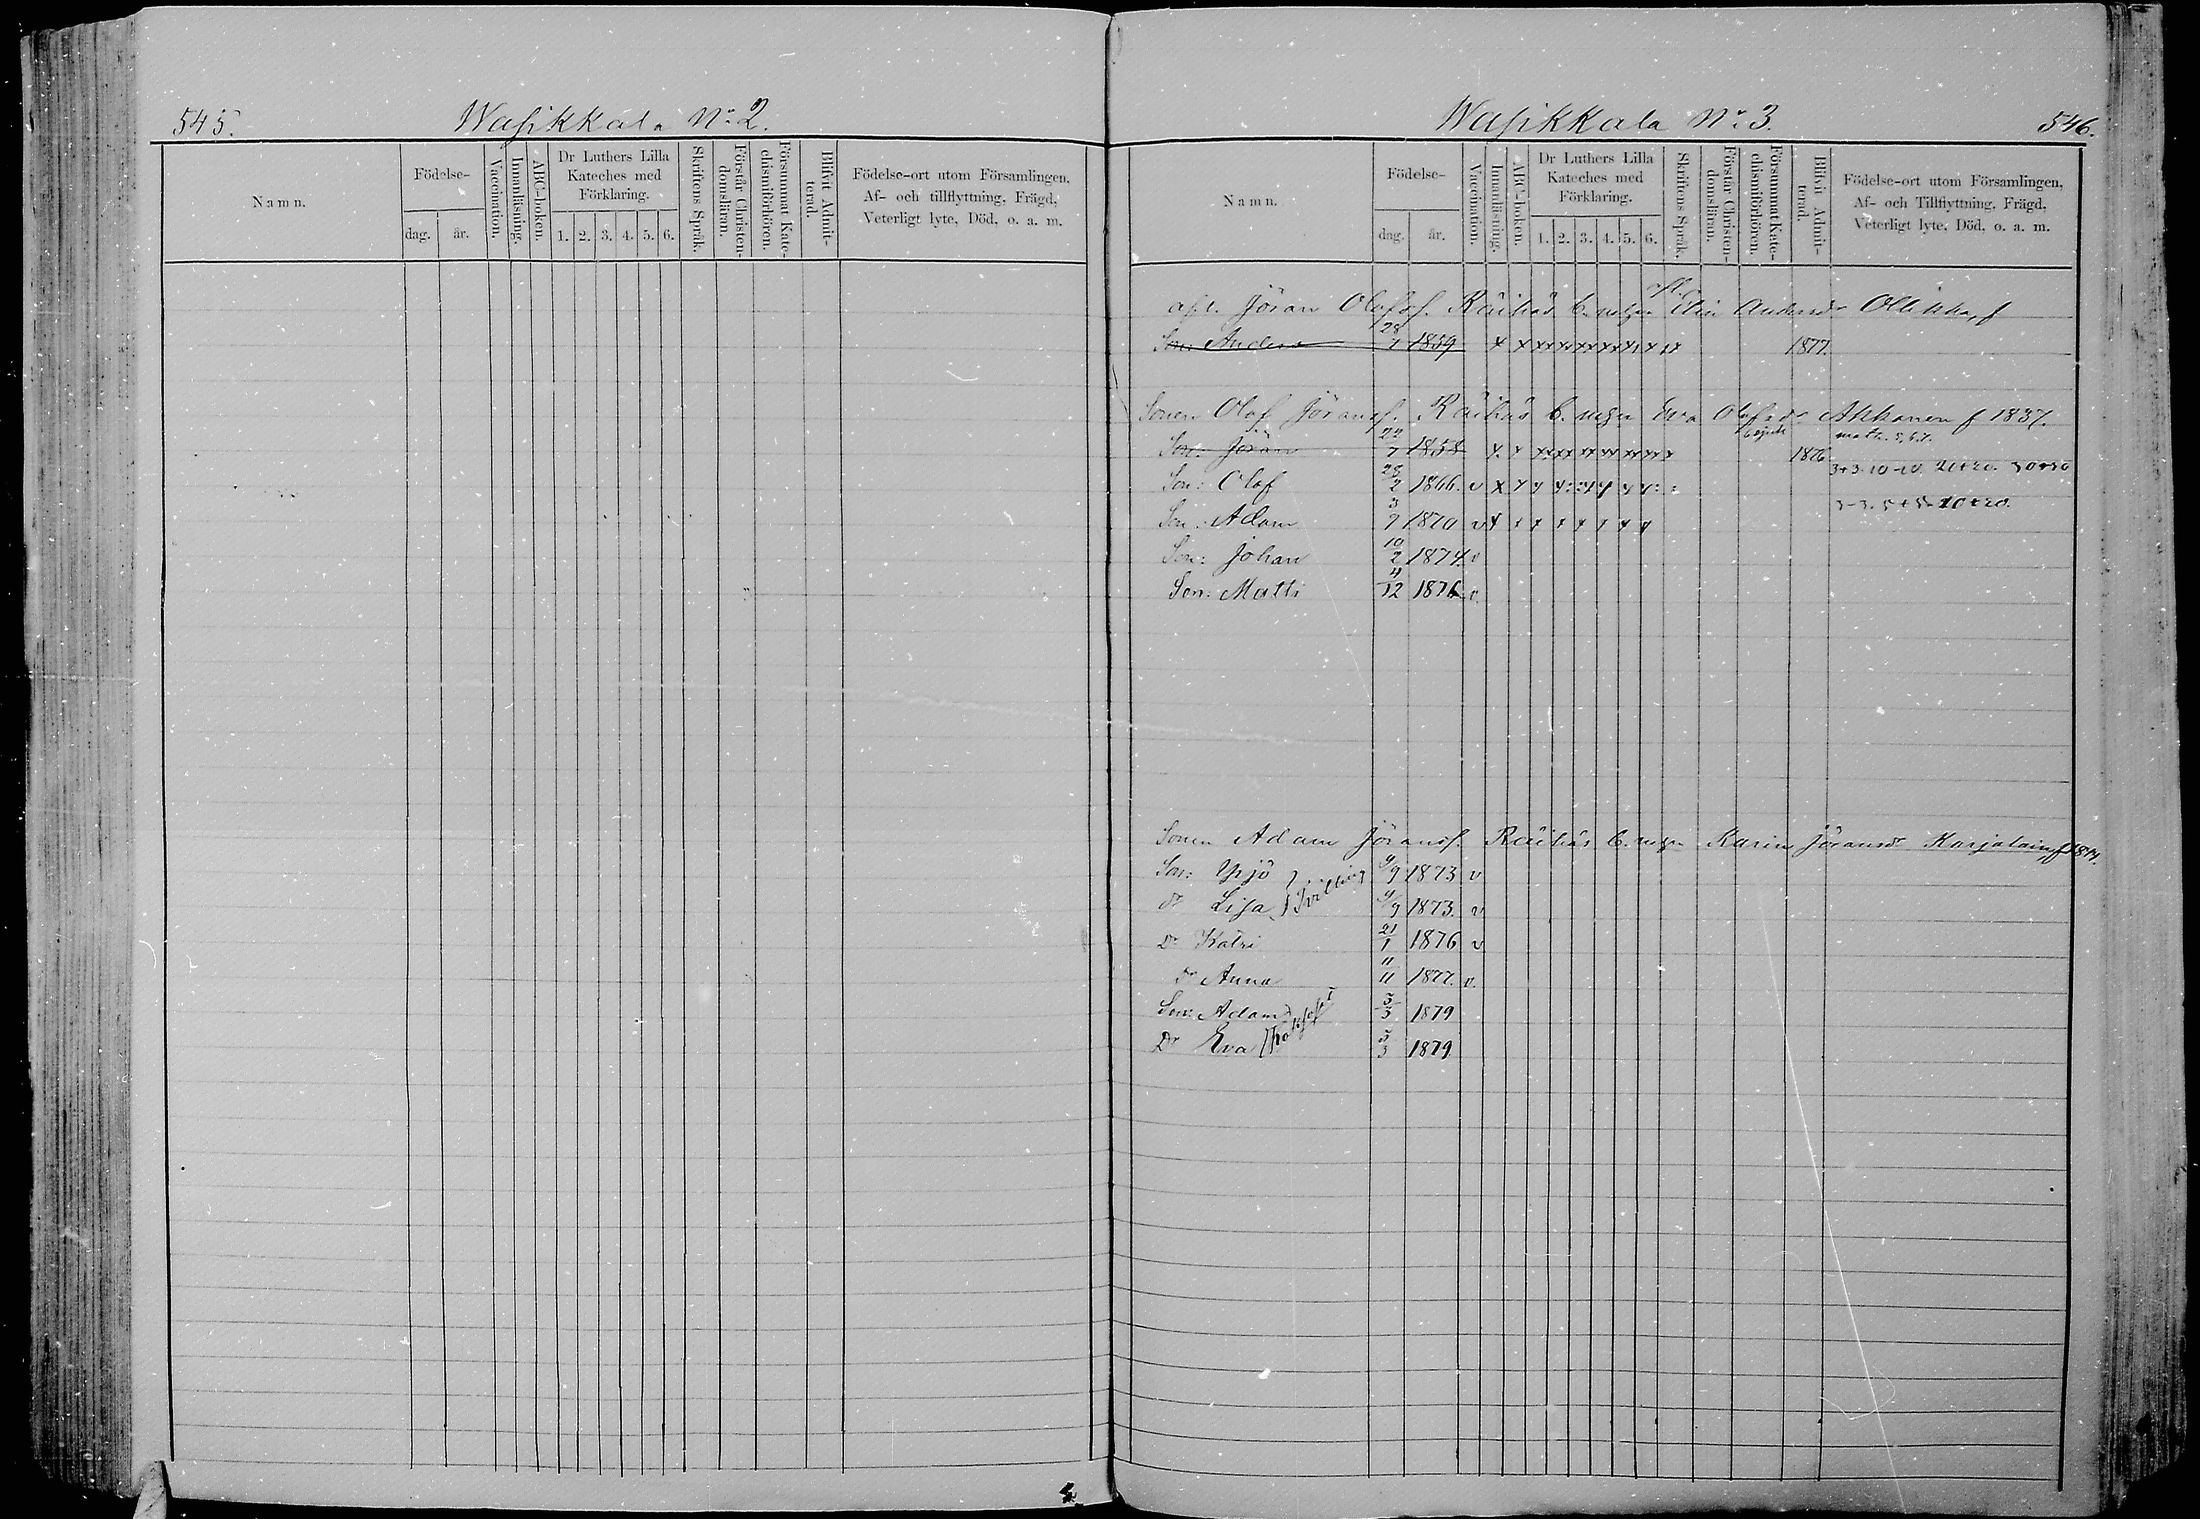 545.
Wasikkala No: 2.
Namn.
Födelse-
dag. år.
Vaccination.
Innanläsning.
ABC-boken.
Dr Luthers Lilla
Kateches med
Förklaring.
1. 2. 3. 4. 5. 6.
Skriftens Språk.
Förstår Christen-
domsläran.
Försummat Kate-
chismiförhören.
Blifvit Admit-
terad.
Födelse-ort utom Församlingen,
Af- och tillflyttning, Frägd,
Veterligt lyte, Död, o. a. m.
Wasikkala No: 3.
546.
Namn.
Födelse-
dag. år.
Vaccination.
Innanläsning.
ABC-boken.
Dr Luthers Lilla
Kateches med
Förklaring.
1. 2. 3. 4. 5. 6.
Skriftens Språk.
Förstår Christen-
domsläran.
Försummat Kate-
chismiförhören.
Blifvit Admit-
terad.
Födelse-ort utom Församlingen,
Af- och Tillflyttning, Frägd,
Veterligt lyte, Död, o. a. m.
Jöran Olofss. Räihäs Elin Andersdr Ollikka
Son: Anders 28/7 1859 x x xx xx xx xx xx x xx 1877.
Sonen Olof Jöranss. Räihäs Eva Olofsdr Akkanen f 1837.
Son: Jöran 22/7 1858 x x xx xx xx xx xx xx x 1876
Son: Olof 28/2 1866. v x x
Son: Adam 3/9 1870 v x x x x x x x x
Son: Johan 10/2 1874. v
Son: Matti 4/12 1876 v.
Sonen Adam Jöranss. Räihäs Karin Jöransdr Karjalain
Son: Yrjö } Tvilling 9/9 1873 v
dr Lisa 9/9 1873. v
Dr Katri 21/1 1876 v
dr Anna 11/11 1877. v.
Son: Adam 5/3 1879
Dr Eva 5/3 1879.